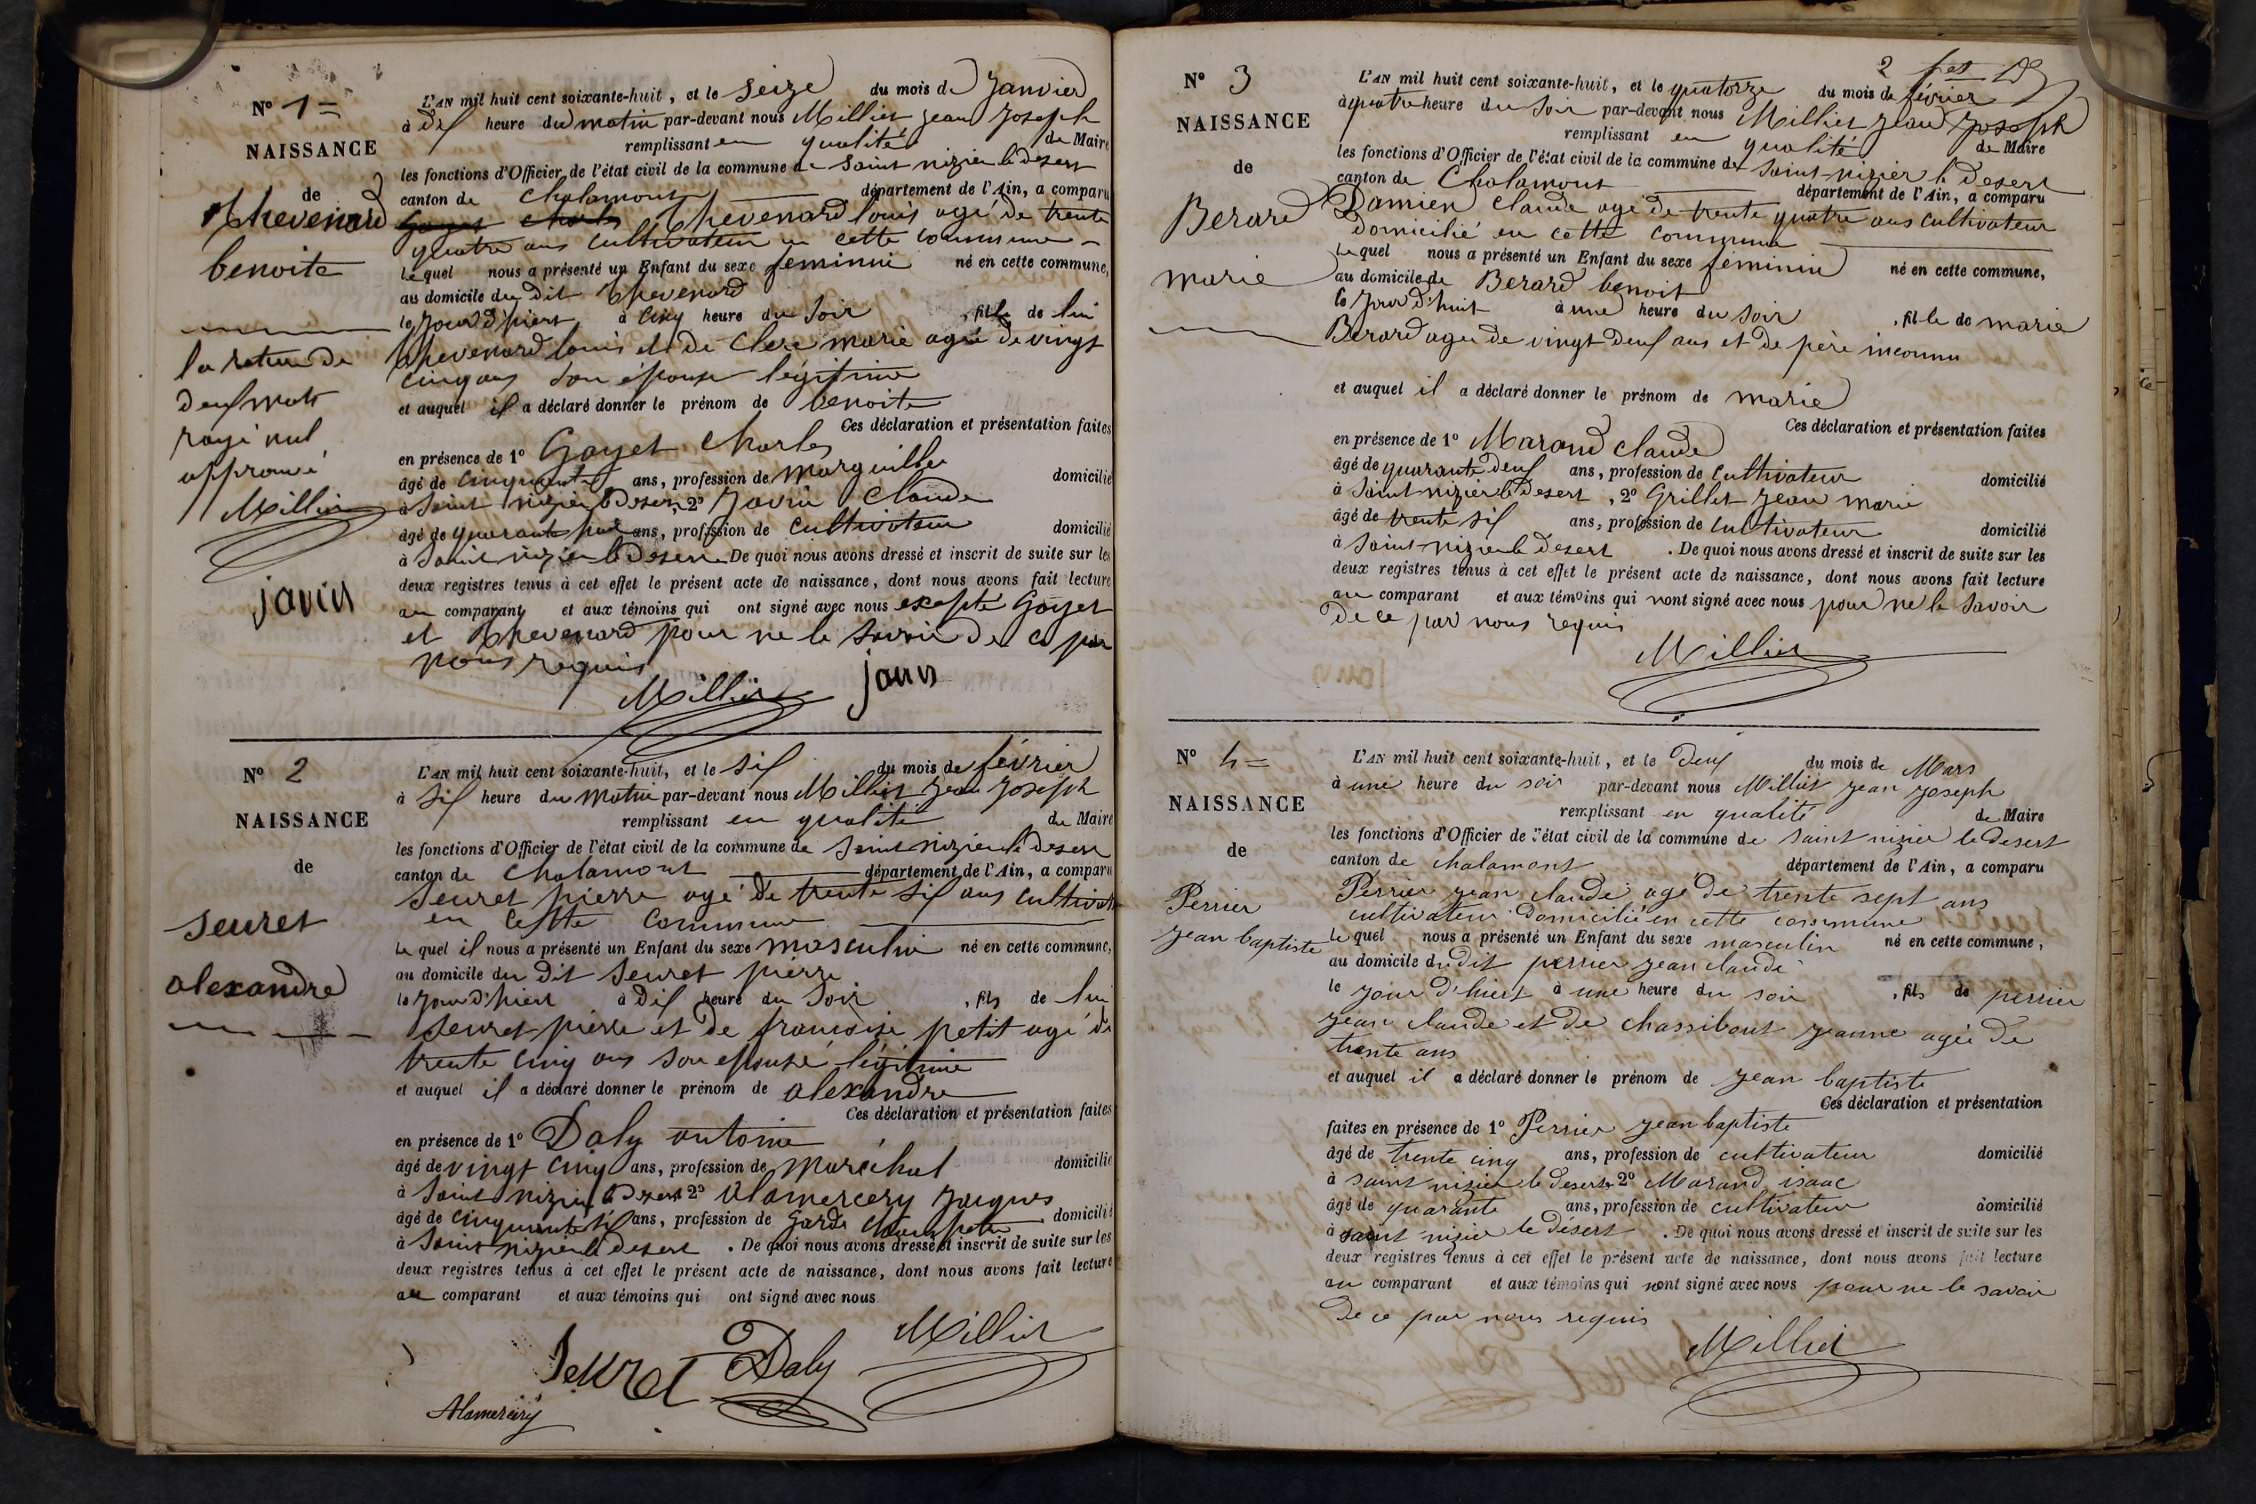 N° 1 =
NAISSANCE
de
Chevenard
benoite
la rature de
deux mots
rayé nul
approuvé
Milliet
javin
L'AN mil huit cent soixante-huit, et le seize du mois de janvier
à dix heure du matin par-devant nous Milliet jean joseph
remplissant en qualité de Maire
les fonctions d'Officier de l'état civil de la commune de saint nizier le desert
canton de chalamont département de l'Ain, a comparu
Gayet Charles Chevenard louis agé de trente
quatre ans cultivateur en cette commune
lequel nous a présenté un Enfant du sexe feminin né en cette commune,
au domicile du dit Chevenard
le jour d'hiert à cinq heure du soir , fille de lui
Chevenard louis et de Clerc marie agée de vingt
cinq ans son épouse légitime
et auquel il a déclaré donner le prénom de benoite
Ces déclaration et présentation faites
en présence de 1° Gayet Charles
âgé de cinquante ans, profession de marguillier domicilié
à saint nizier le desert, 2° javin claude
âgé de quarante ans, profession de cultivateur domicilié
à saint nizier le desert De quoi nous avons dressé et inscrit de suite sur les
deux registres tenus à cet effet le présent acte de naissance, dont nous avons fait lecture
au comparant et aux témoins qui ont signé avec nous excepté Gayet
et Chevenard pour ne le savoir de ce par
nous requis
Milliet javin
N° 2
NAISSANCE
de
seuret
alexandre
L'AN mil huit cent soixante-huit, et le six du mois de février
à six heure du matin par-devant nous Milliet jean joseph
remplissant en qualité de Maire
les fonctions d'Officier de l'état civil de la commune de saint nizier le desert
canton de chalamont département de l'Ain, a comparu
seuret pierre agé de trente six ans cultivat
en cette commune
lequel il nous a présenté un Enfant du sexe masculin né en cette commune,
au domicile du dit seuret pierre
le jour d'hiert à dix heure du soir , fils de lui
seuret pierre et de francoise petit agé de
trente cinq ans son epouse légitime
et auquel il a déclaré donner le prénom de alexandre
Ces déclaration et présentation faites
en présence de 1° Daly antoine
âgé de vingt cinq ans, profession de maréchal domicilié
à saint nizier le desert 2° alamercery jacques
âgé de cinquante six ans, profession de garde champetre domicilié
à saint nizier le desert . De quoi nous avons dressé et inscrit de suite sur les
deux registres tenus à cet effet le présent acte de naissance, dont nous avons fait lecture
au comparant et aux témoins qui ont signé avec nous
Seuret Daly Milliet
Alamercery
2
N° 3
NAISSANCE
de
Berard
marie
L'AN mil huit cent soixante-huit, et le quatorze du mois de février
à quatre heure du soir par-devant nous Milliet jean joseph
remplissant en qualité de Maire
les fonctions d'Officier de l'état civil de la commune de saint nizier le desert
canton de Chalamont département de l'Ain, a comparu
Damien claude agé de trente quatre ans cultivateur
domicilié en cette commune
lequel nous a présenté un Enfant du sexe féminin né en cette commune,
au domicile de Berard benoit
le jour d'huit à une heure du soir , fille de marie
Berard agée de vingt deux ans et de père inconnu
et auquel il a déclaré donner le prénom de marie
Ces déclaration et présentation faites
en présence de 1° Marand claude
âgé de quarante deux ans, profession de cultivateur domicilié
à saint nizier le desert , 2° Grillet jean marie
âgé de trente six ans, profession de cultivateur domicilié
à saint nizier le desert . De quoi nous avons dressé et inscrit de suite sur les
deux registres tenus à cet effet le présent acte de naissance, dont nous avons fait lecture
au comparant et aux témoins qui nont signé avec nous pour ne le savoir
de ce par nous requis
Milliet
N° 4 =
NAISSANCE
de
Perrier
jean baptiste
L'AN mil huit cent soixante-huit, et le deux du mois de Mars
à une heure du soir par-devant nous Milliet jean joseph
remplissant en qualité de Maire
les fonctions d'Officier de l'état civil de la commune de saint nizier le desert
canton de chalamont département de l'Ain, a comparu
Perrier jean claude agé de trente sept ans
cultivateur domicilié en cette commune
lequel nous a présenté un Enfant du sexe masculin né en cette commune,
au domicile dudit perrier jean claude
le jour d'hiert à une heure du soir , fils de perrier
jean claude et de chassibout jeanne agée de
trente ans
et auquel il a déclaré donner le prénom de jean baptiste
Ces déclaration et présentation
faites en présence de 1° Perrier jean baptiste
âgé de trente cinq ans, profession de cultivateur domicilié
à saint nizier le desert, 2° Marand isaac
âgé de quarante ans, profession de cultivateur domicilié
à saint nizier le désert . De quoi nous avons dressé et inscrit de suite sur les
deux registres tenus à cet effet le présent acte de naissance, dont nous avons fait lecture
au comparant et aux témoins qui nont signé avec nous pour ne le savoir
de ce par nous requis
Milliet